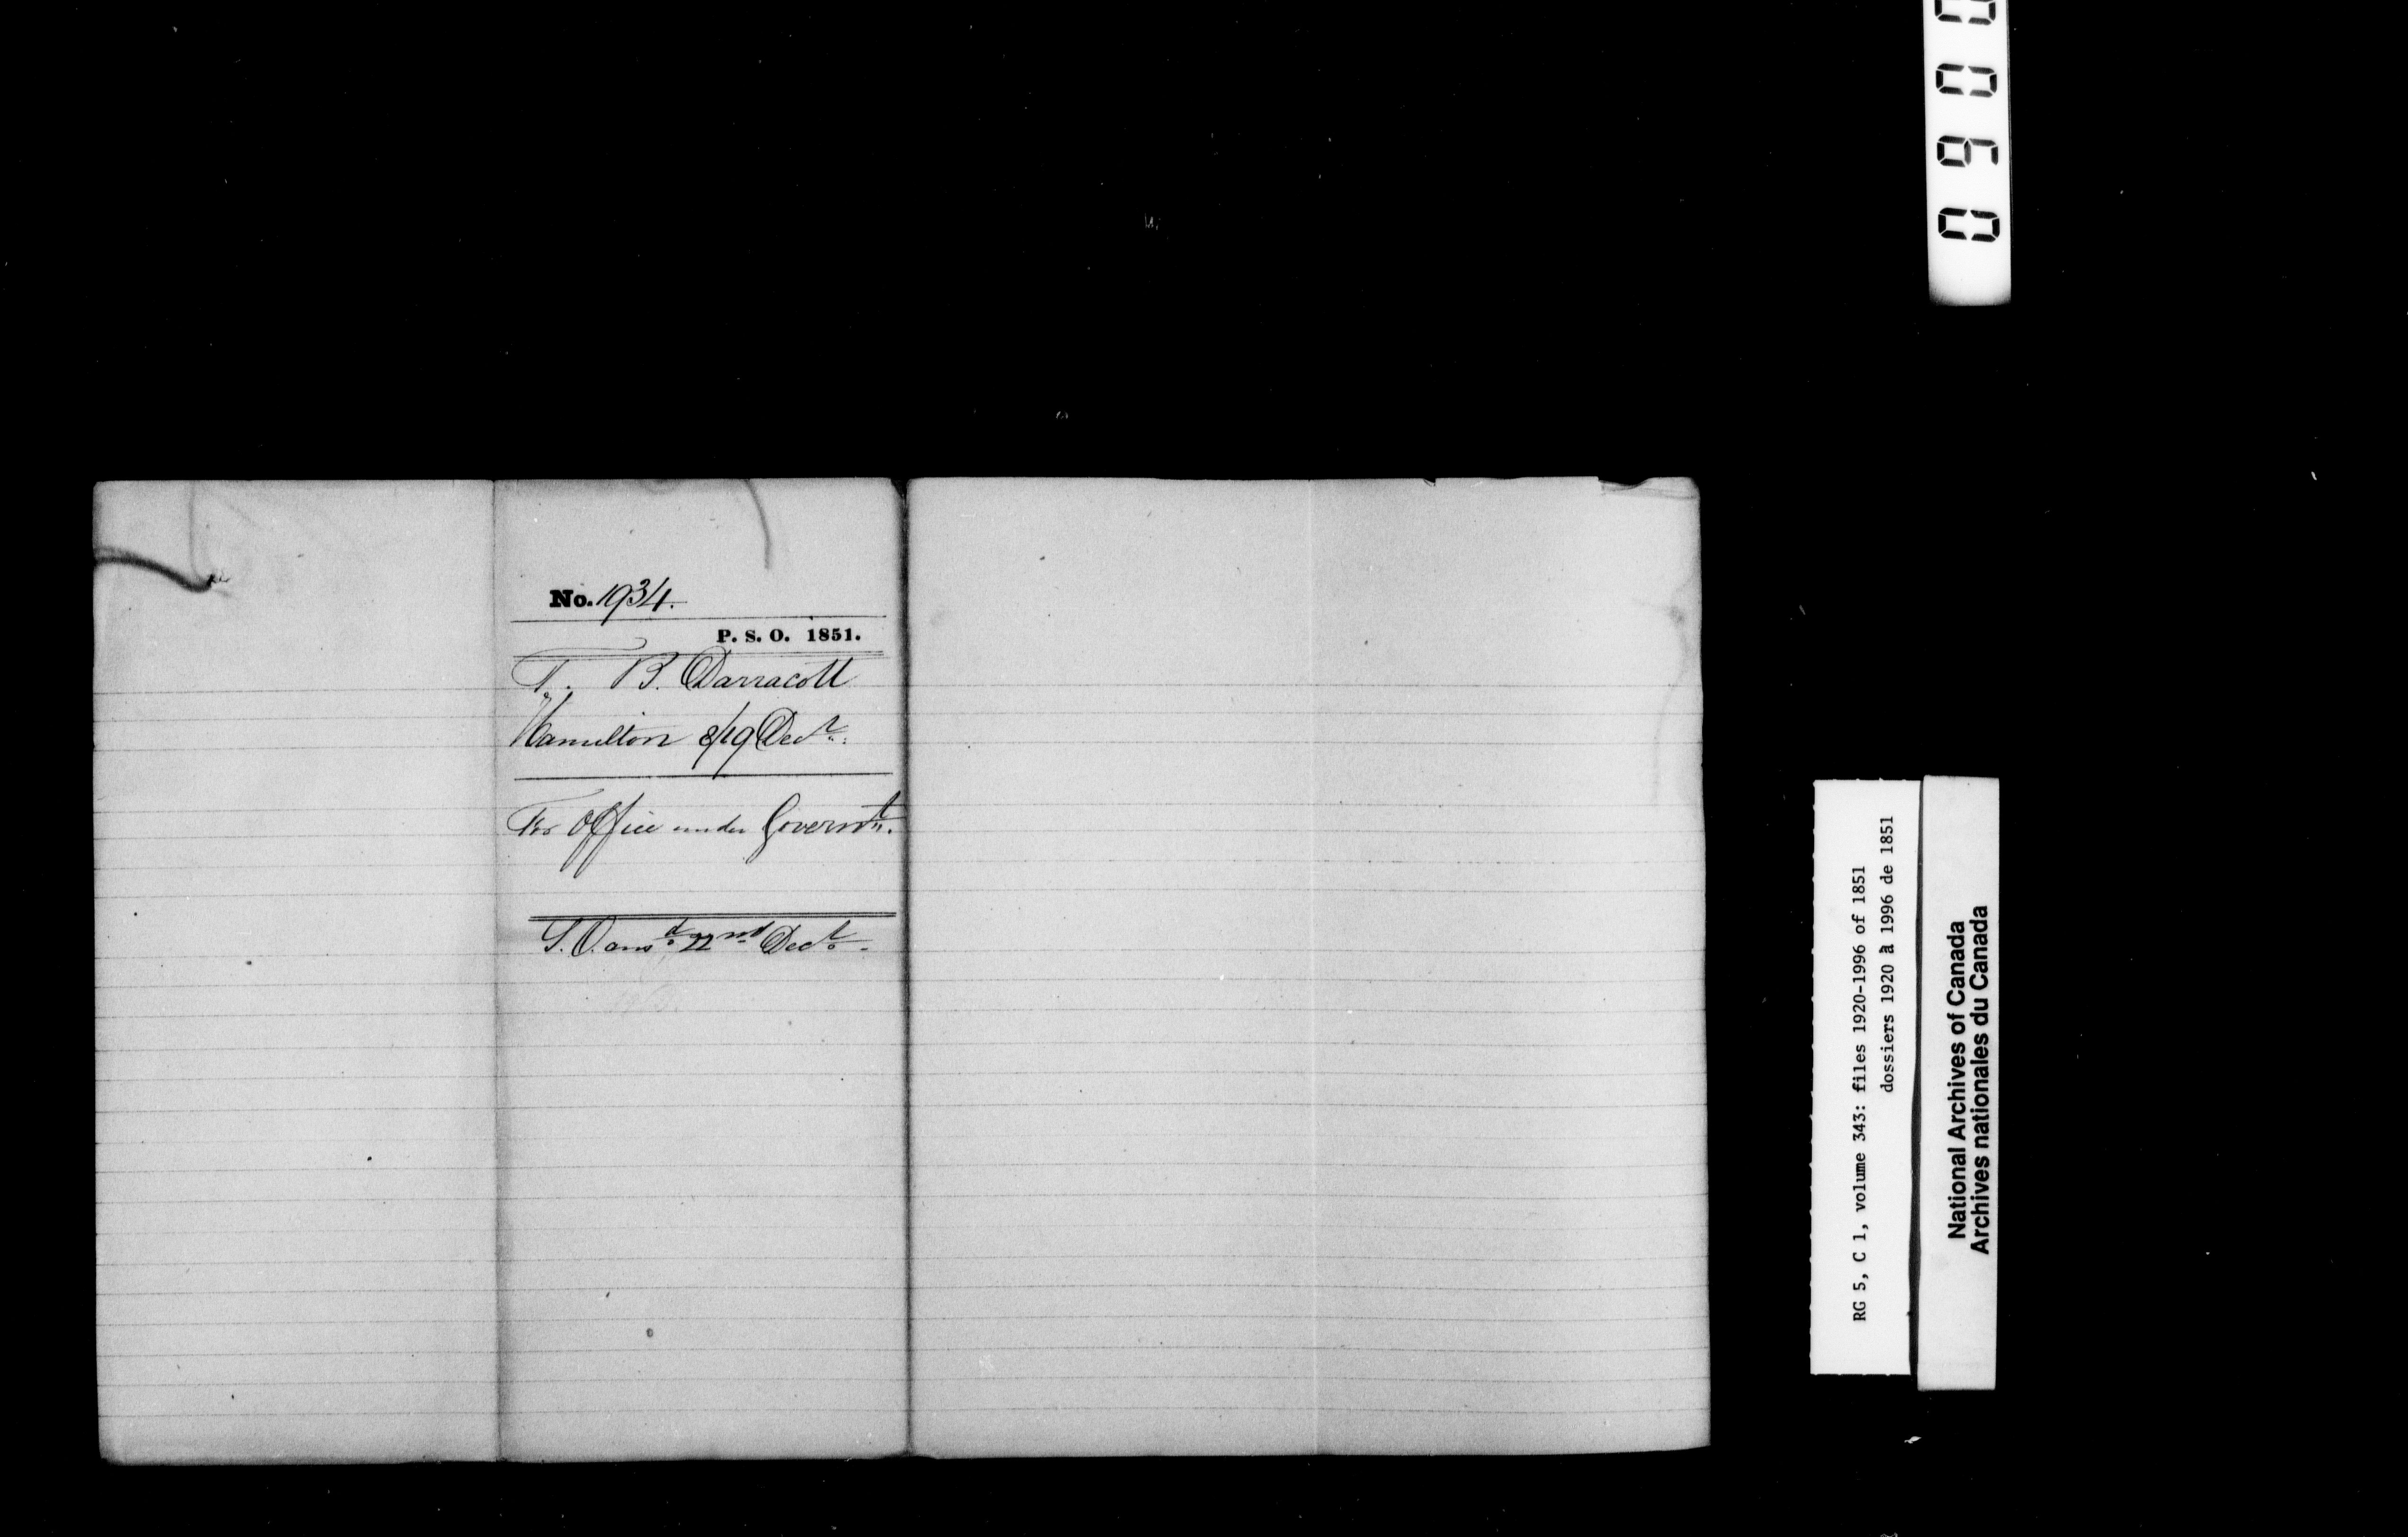 No. 1934.
P. S. O. 1851.
T. B. Darracott
Hamilton 8/19 Decr.
For Office under Governt.
S. O. ansd. 22nd Decr.
RG 5, C 1, volume 343: files 1920-1996 of 1851
dossiers 1920 à 1996 de 1851
National Archives of Canada
Archives nationales du Canada